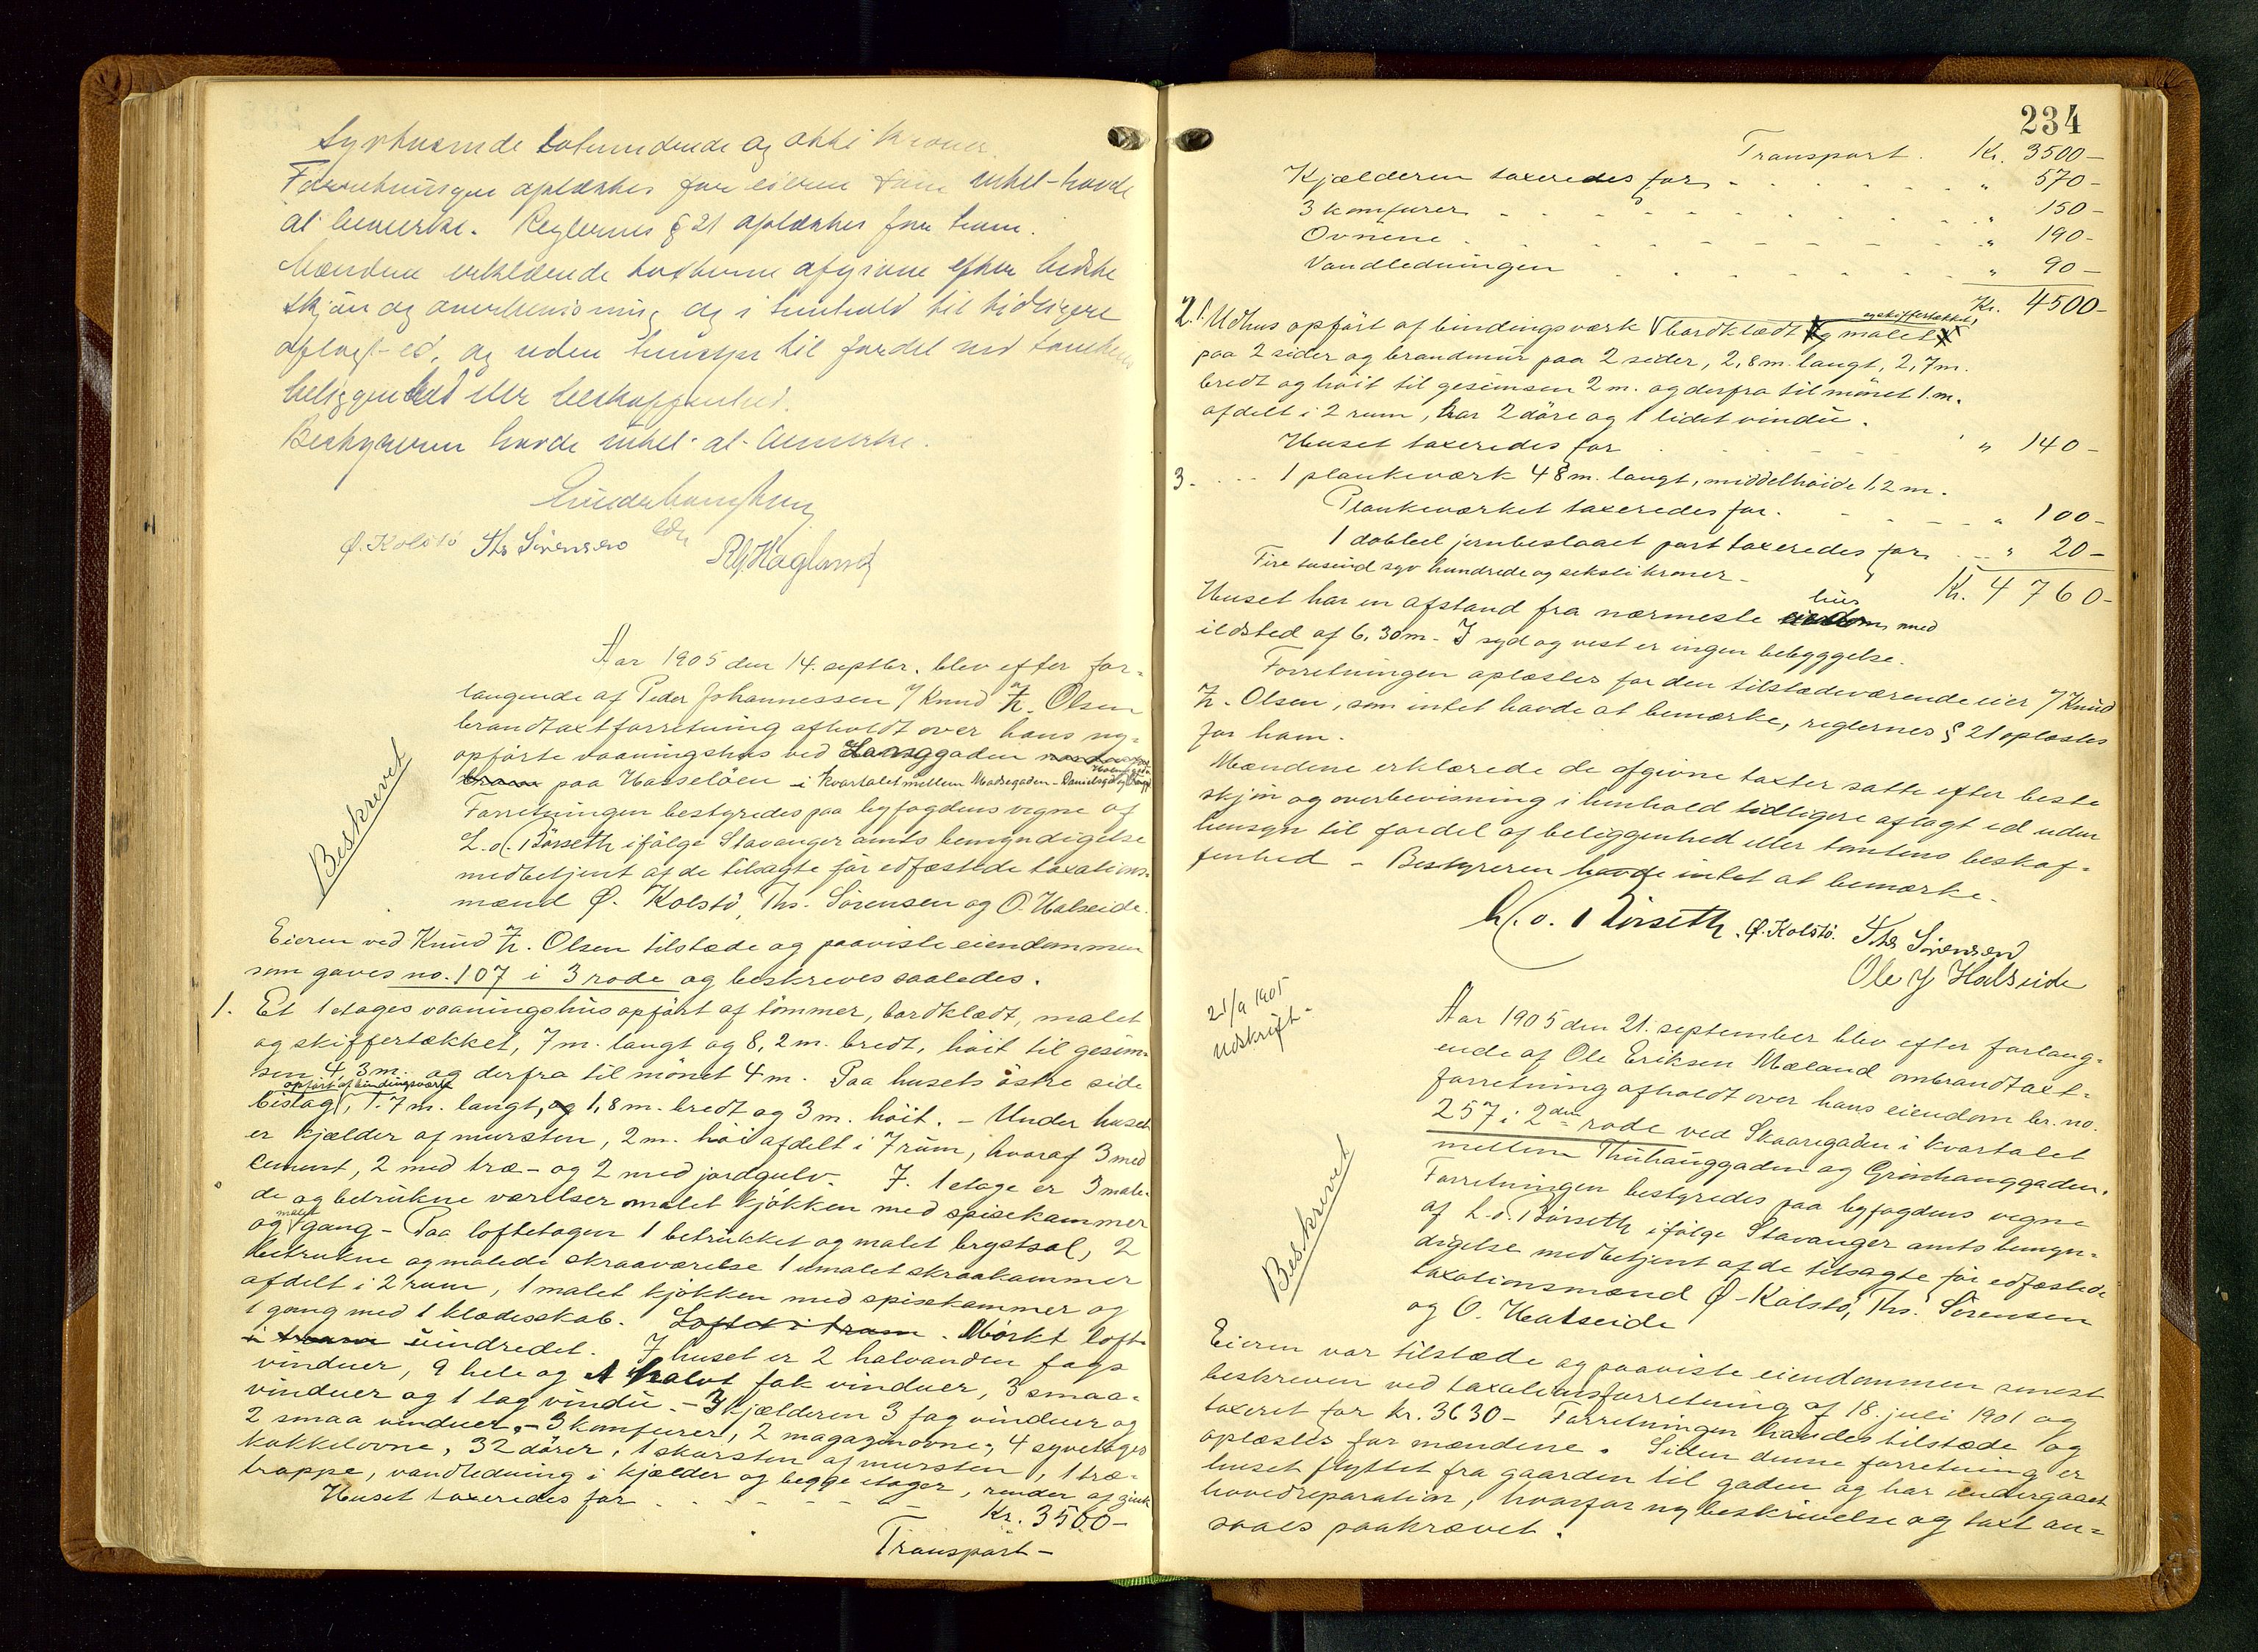 Syvtusende tohundrede og otti kroner.
Forretningen oplæstes for eieren som intet havde
at bemerke. Reglernes § 21 oplæstes for ham.
Mændene erklærede taxterne afgivne efter bedste
skjön og overbevisning og i henhold til tidligere
aflagt ed, og uden hensyn til fordel ved tomtens
beliggenhed eller beskaffenhed.
Bestyreren havde intet at bemerke.
Ø. Kolstö Ths Sörensen
Aar 1905 den 14. septbr. blev efter for-
langende af Peder Johannessen v/ Knud Z. Olsen
brandtaxtforretning afholdt over hans ny-
opförte vaaningshus ved Langgaden
paa Hasselöen i kvartalet mellem Madsegaden - Danielsgd.
Beskrevet
Forretningen bestyredes paa byfogdens vegne af
L. O. Börseth ifölge Stavanger amts bemyndigelse
medbetjent af de tilsagte för edfæstede taxations-
mænd Ø. Kolstö, Ths. Sörensen og O. Halseide.
Eieren ved Knud Z. Olsen tilstæde og paaviste eiendommen
som gaves no. 107 i 3 rode og beskreves saaledes.
1. Et 1 etages vaaningshus opfört af tömmer, bordklædt, malet
og skiffertækket, 7 m. langt og 8,2 m. bredt, höit til gesim-
sen 4,3 m. og derfra til mönet 4 m. Paa husets östre side
opfört af bindingsværk
bislag, 1.7 m. langt, og 1,8 m. bredt og 3 m. höit. - Under huset
er kjælder af mursten, 2 m. höi afdelt i 7 rum, hvoraf 3 med
cement, 2 med træ- og 2 med jordgulv. I 1 etage er 3 male-
de og betrukne værelser malet kjökken med spisekammer
og malet gang - Paa loftetagen 1 betrukket og malet brystsal, 2
betrukne og malede skraaværelse 1 umalet skraakammer
afdelt i 2 rum, 1 malet kjökken med spisekammer og
1 gang med 1 klædesskab. Loftet i tram. Mörkt loft
i tram uindredet. I huset er 2 halvanden fags
vinduer, 9 hele og 1 halvt fak vinduer, 3 smaa-
vinduer og 1 tag vindu. - I kjælderen 3 fag vinduer og
2 smaa vinduer. - 3 komfurer, 2 magazinovne, 4 syvetages
kakkelovne, 32 dörer, 1 skorsten af mursten, 1 træ-
trappe, vandledning i kjælder og begge etager, render af zink
Huset taxeredes for Kr. 3500-
Transport -
234
Transport. Kr. 3500-
Kjælderen taxeredes for " 570-
3 komfurer " 150-
Ovnene " 190-
Vandledningen " 90-
Kr. 4500-
og skiffertækket,
2. 1 Udhus opfört af bindingsværk bordklædt og malet
paa 2 sider og brandmur paa 2 sider, 2,8 m. langt, 2,7 m.
bredt og höit til gesimsen 2 m. og derfra til mönet 1. m.
afdelt i 2 rum, har 2 döre og 1 lidet vindu.
Huset taxeredes for " 140-
3. 1 plankeværk 48 m. langt, middelhöide 1,2 m.
Plankeværket taxeredes for. " 100-
1 dobbel jernbeslaaet port taxeredes for " 20-
Fire tusind syv hundrede og seksti kroner - Kr. 4760-
Huset har en afstand fra nærmeste hus med
ildsted af 6,30 m - I syd og vest er ingen bebyggelse.
Forretningen oplæstes for den tilstædeværende eier v/ Knud
Z. Olsen, som intet havde at bemærke, reglernes § 21 oplæstes
for ham.
Mændene erklærede de afgivne taxter satte efter beste
skjön og overbevisning i henhold tidligere aflagt ed uden
hensyn til fordel af beliggenhed eller tomtens beskaf-
fenhed - Bestyreren havde intet at bemærke.
L. O. Börseth. Ø. Kolstö. Ths Sörensen
Ole J Halseide
21/9 1905
udskrift.
Aar 1905 den 21. september blev efter forlang-
ende af Ole Eriksen Mæland ombrandtaxt-
forretning afholdt over hans eiendom br. no.
257 i 2den rode ved Skaaregaden i kvartalet
mellem Thuhauggaden og Grönhauggaden.
Beskrevet
Forretningen bestyredes paa byfogdens vegne
af L. O. Börseth ifölge Stavanger amts bemyn-
digelse medbetjent af de tilsagte för edfæstede
taxationsmænd Ø. Kolstö, Ths. Sörensen
og O. Halseide
Eieren var tilstæde og paaviste eiendommen senest
beskreven ved taxationsforretning af 18. juli 1901 og
taxeret for kr. 3630 - Forretningen havdes tilstæde og
oplæstes for mændene. Siden denne forretning er
huset flyttet fra gaarden til gaden og har undergaaet
hovedreparation, hvorfor ny beskrivelse og taxt an-
saaes paakrævet.